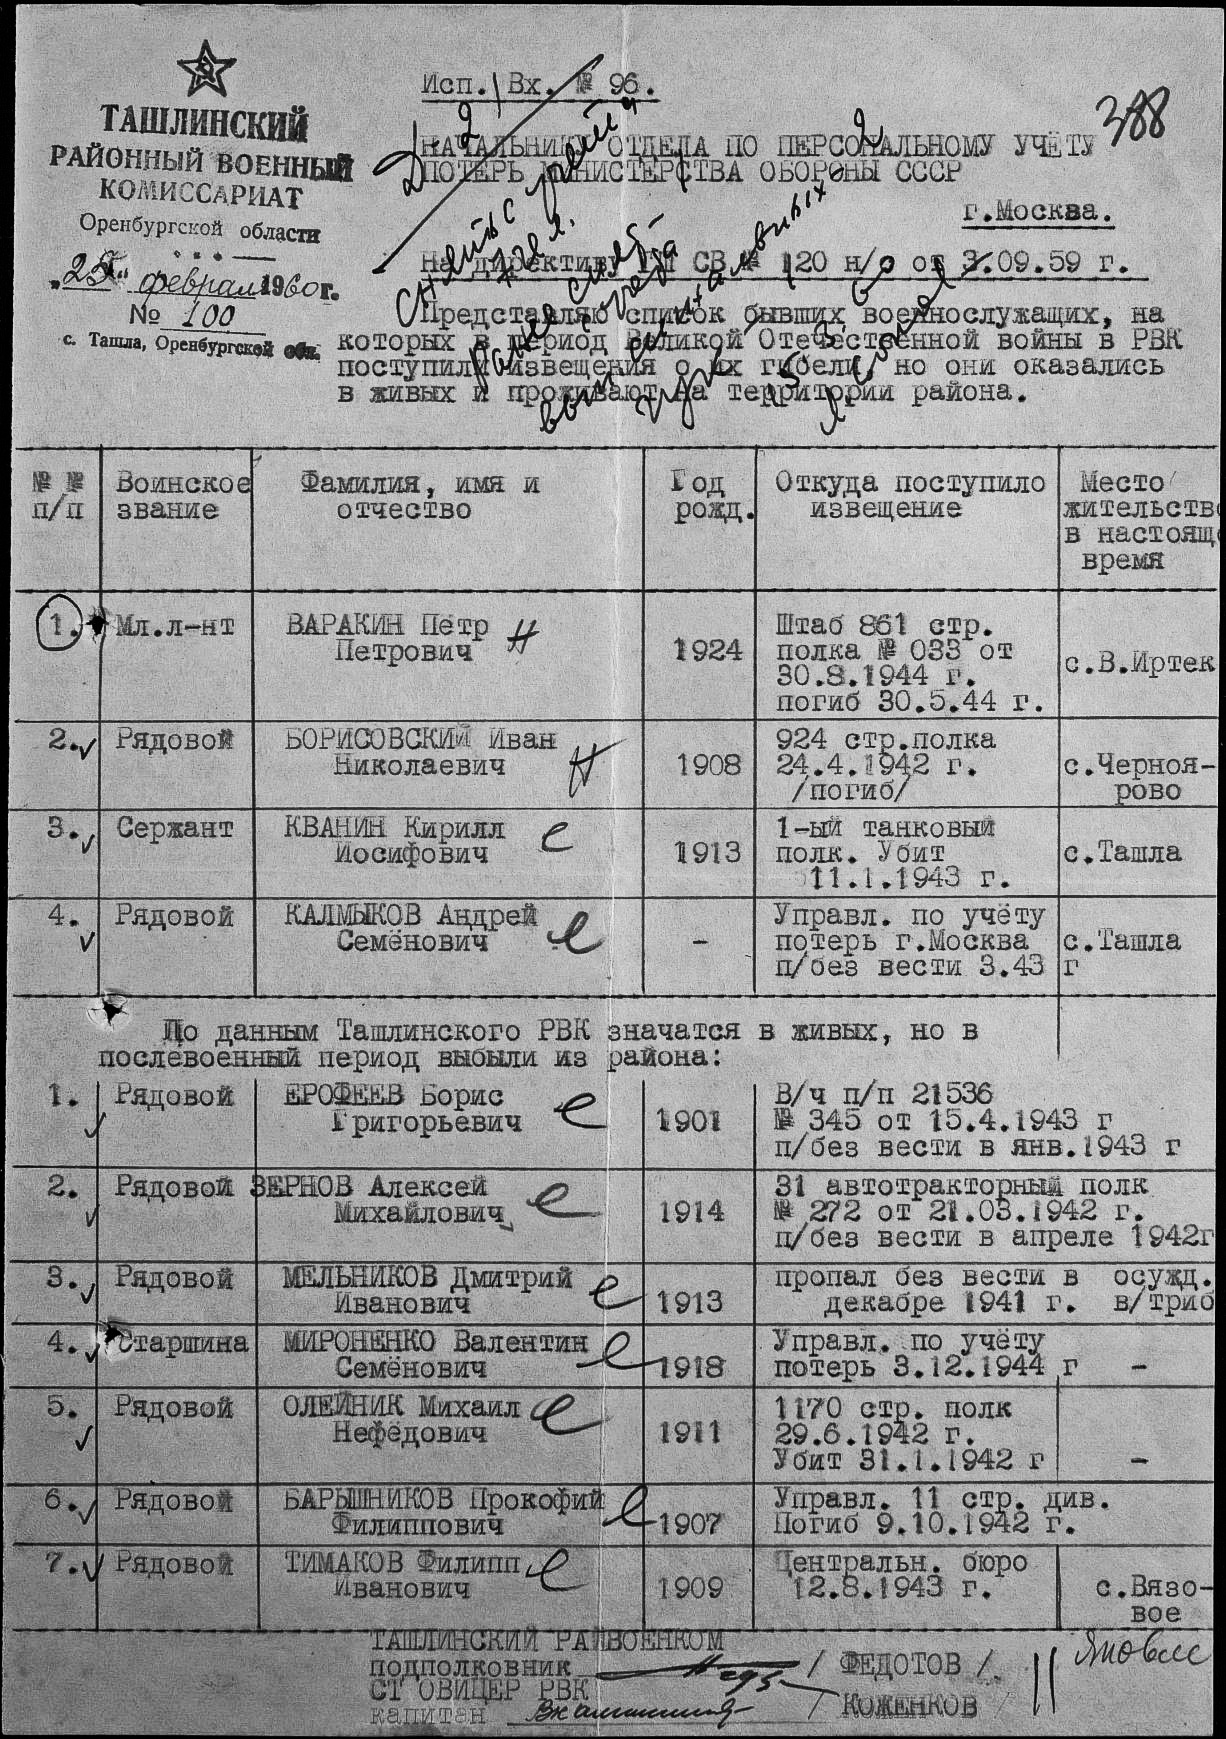 ТАШЛИНСКИЙ
РАЙОННЫЙ ВОЕННЫЙ
КОМИССАРИАТ
Оренбургской области
"25" февраля 1960 г.
№ 100
с. Ташла, Оренбургской обл.
Исп./Вх. № 96.
388
НАЧАЛЬНИКУ ОТДЕЛА ПО ПЕРСОНАЛЬНОМУ УЧЁТУ
ПОТЕРЬ МИНИСТЕРСТВА ОБОРОНЫ СССР
г.Москва.
На директиву ГШ СВ № 120 н/о от 3.09.59 г.
Представляю список бывших военнослужащих, на
которых в период Великой Отечественной войны в РВК
поступили извещения о их гибели, но они оказались
в живых и проживают на территории района.
№ № п/п
Воинское звание
Фамилия, имя и отчество
Год рожд.
Откуда поступило извещение
Место жительство в настояще время
1. Мл.л-нт ВАРАКИН Пётр
Петрович 1924
Штаб 861 стр.
полка № 033 от
30.8.1944 г.
погиб 30.5.44 г.
с.В.Иртек
2. Рядовой БОРИСОВСКИЙ Иван
Николаевич 1908
924 стр.полка
24.4.1942 г.
/погиб/
с.Черноя-
рово
3. Сержант КВАНИН Кирилл
Иосифович 1913
1-ый танковый
полк. Убит
11.1.1943 г.
с.Ташла
4. Рядовой КАЛМЫКОВ Андрей
Семёнович -
Управл. по учёту
потерь г.Москва
п/без вести 3.43 г
с.Ташла
По данным Ташлинского РВК значатся в живых, но в
послевоенный период выбыли из района:
1. Рядовой ЕРОФЕЕВ Борис
Григорьевич 1901
В/ч п/п 21536
№ 345 от 15.4.1943 г
п/без вести в янв.1943 г
2. Рядовой ЗЕРНОВ Алексей
Михайлович 1914
31 автотракторный полк
№ 272 от 21.03.1942 г.
п/без вести в апреле 1942г
3. Рядовой МЕЛЬНИКОВ Дмитрий
Иванович 1913
пропал без вести в
декабре 1941 г.
осужд.
в/триб
4. Старшина МИРОНЕНКО Валентин
Семёнович 1918
Управл. по учёту
потерь 3.12.1944 г -
5. Рядовой ОЛЕЙНИК Михаил
Нефёдович 1911
1170 стр. полк
29.6.1942 г.
Убит 31.1.1942 г -
6. Рядовой БАРЫШНИКОВ Прокофий
Филиппович 1907
Управл. 11 стр. див.
Погиб 9.10.1942 г.
7. Рядовой ТИМАКОВ Филипп
Иванович 1909
Центральн. бюро
12.8.1943 г.
с.Вязо-
вое
ТАШЛИНСКИЙ РАЙВОЕНКОМ
подполковник / ФЕДОТОВ /
СТ ОФИЦЕР РВК
капитан / КОЖЕНКОВ /